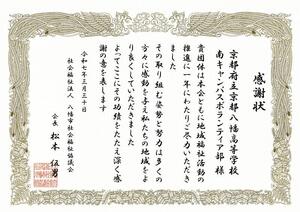 感謝状
京都府立京都八幡高等学校
南キャンパスボランティア部 様
貴団体は本会とともに地域福祉活動の
推進に一年にわたりご尽力いただき
ました
その取り組む姿勢と努力は多くの
方々に感動を与え私たちの地域をよ
り良くしていただきました
よってここにその功績をたたえ深く感
謝の意を表します
令和七年三月三十日
社会福祉法人 八幡市社会福祉協議会
会長 松本 伍男